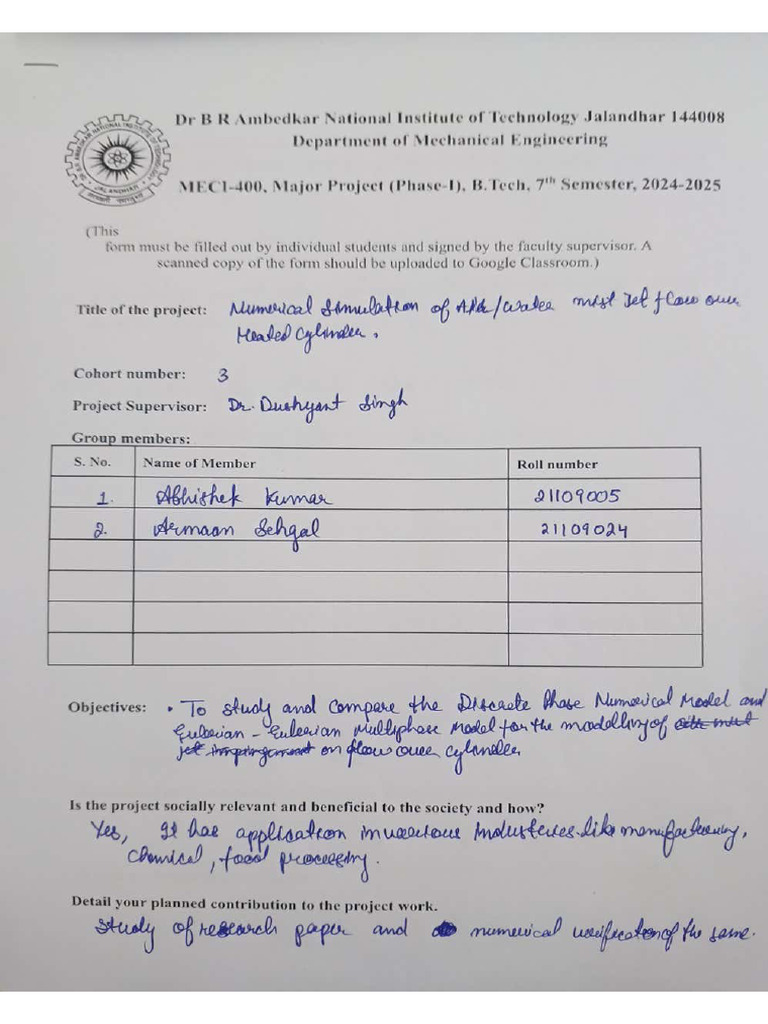 Dr B R Ambedkar National Institute of Technology Jalandhar 144008
Department of Mechanical Engineering
MECI-400, Major Project (Phase-I), B.Tech, 7th Semester, 2024-2025
(This
form must be filled out by individual students and signed by the faculty supervisor. A
scanned copy of the form should be uploaded to Google Classroom.)
Title of the project: Numerical Simulation of Air/Water mist Jet flow over
Heated Cylinder.
Cohort number: 3
Project Supervisor: Dr. Dushyant Singh
Group members:
S. No. Name of Member Roll number
1. Abhishek Kumar 21109005
2. Armaan Sehgal 21109024
Objectives: • To study and compare the Discrete Phase Numerical Model and
Eulerian - Eulerian Multiphase Model for the modelling of
jet impingement on flow over cylinder
Is the project socially relevant and beneficial to the society and how?
Yes, It has application in various Industeries like manufacturing,
chemical, food processing.
Detail your planned contribution to the project work.
Study of research paper and numerical verification of the same.